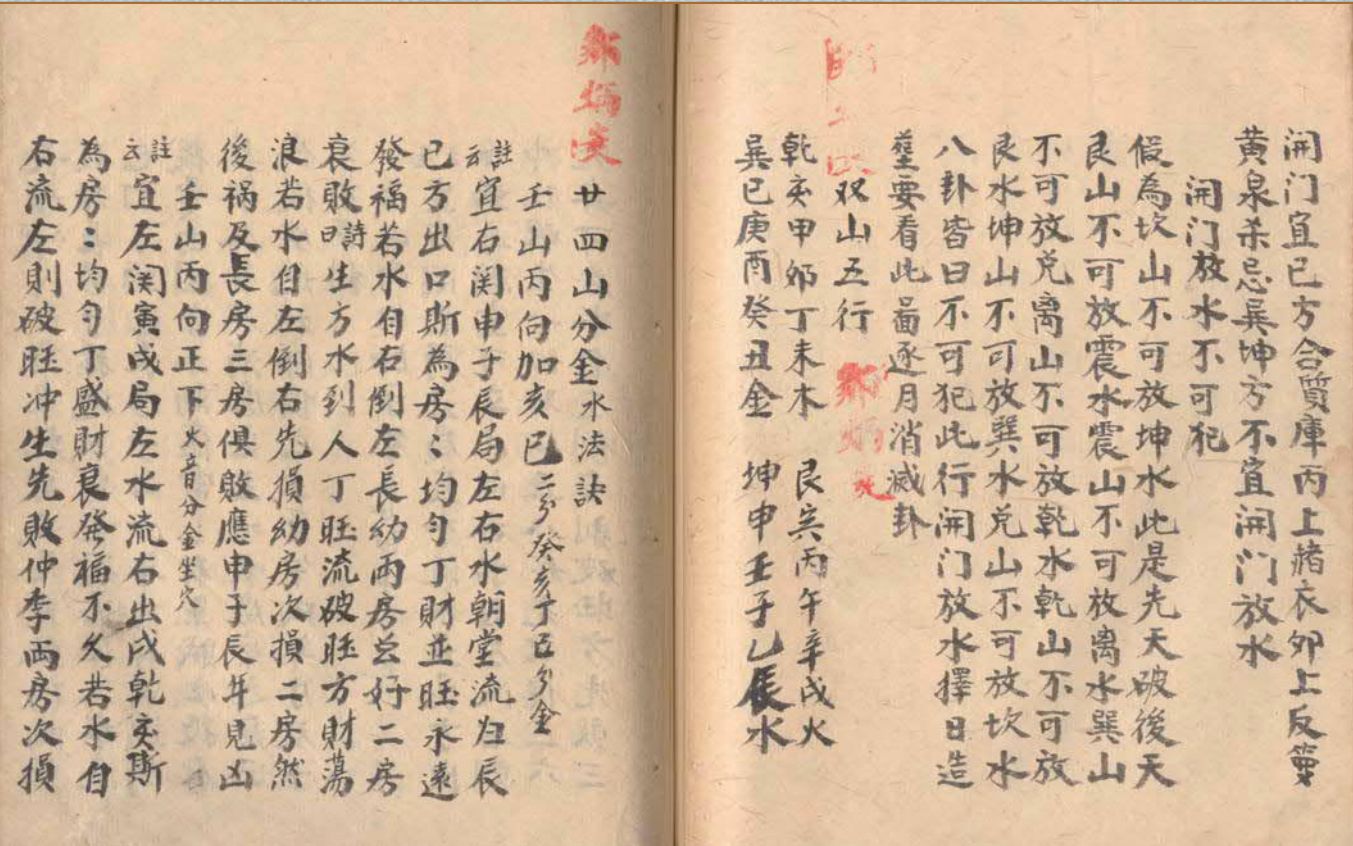 開门宜巳方合質庫丙上赭衣夘上反
黄泉杀忌巽坤方不宜開门放水
開门放水不可犯
假為坎山不可放坤水此是先天破後天
艮山不可放震水震山不可放离水巽山
不可放兑离山不可放乾水乾山不可放
艮水坤山不可放巽水兑山不可放坎水
八卦皆曰不可犯此行開门放水擇日造
塟要看此啚逐月消滅卦
双山五行
乾亥甲夘丁未木 艮寅丙午辛戌火
巽巳庚酉癸丑金 坤申壬子乙辰水
廿四山分金水法訣
壬山丙向加亥巳二分癸亥丁巳分金
註云宜右関申子辰局左右水朝堂流归辰
巳方出口斯為房〻均匀丁財並旺永遠
發福若水自右倒左長幼两房公好二房
衰敗詩曰生方水到人丁旺流破旺方財蕩
浪若水自左倒右先損幼房次損二房然
後祸及長房三房俱敗應申子辰年見凶
壬山丙向正下火音分金坐穴
註云宜左関寅戌局左水流右出戌乾亥斯
為房〻均匀丁盛財衰發福不久若水自
右流左則破旺冲生先敗仲季两房次損